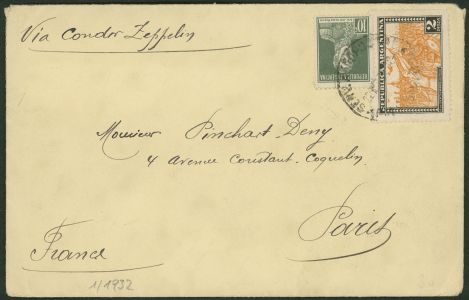 Via Condor Zeppelin
10
REPUBLICA ARGENTINA
2
REPUBLICA ARGENTINA
Monsieur Pinchart-Deny
4 Avenue Constant-Coquelin
Paris
France
1/1932